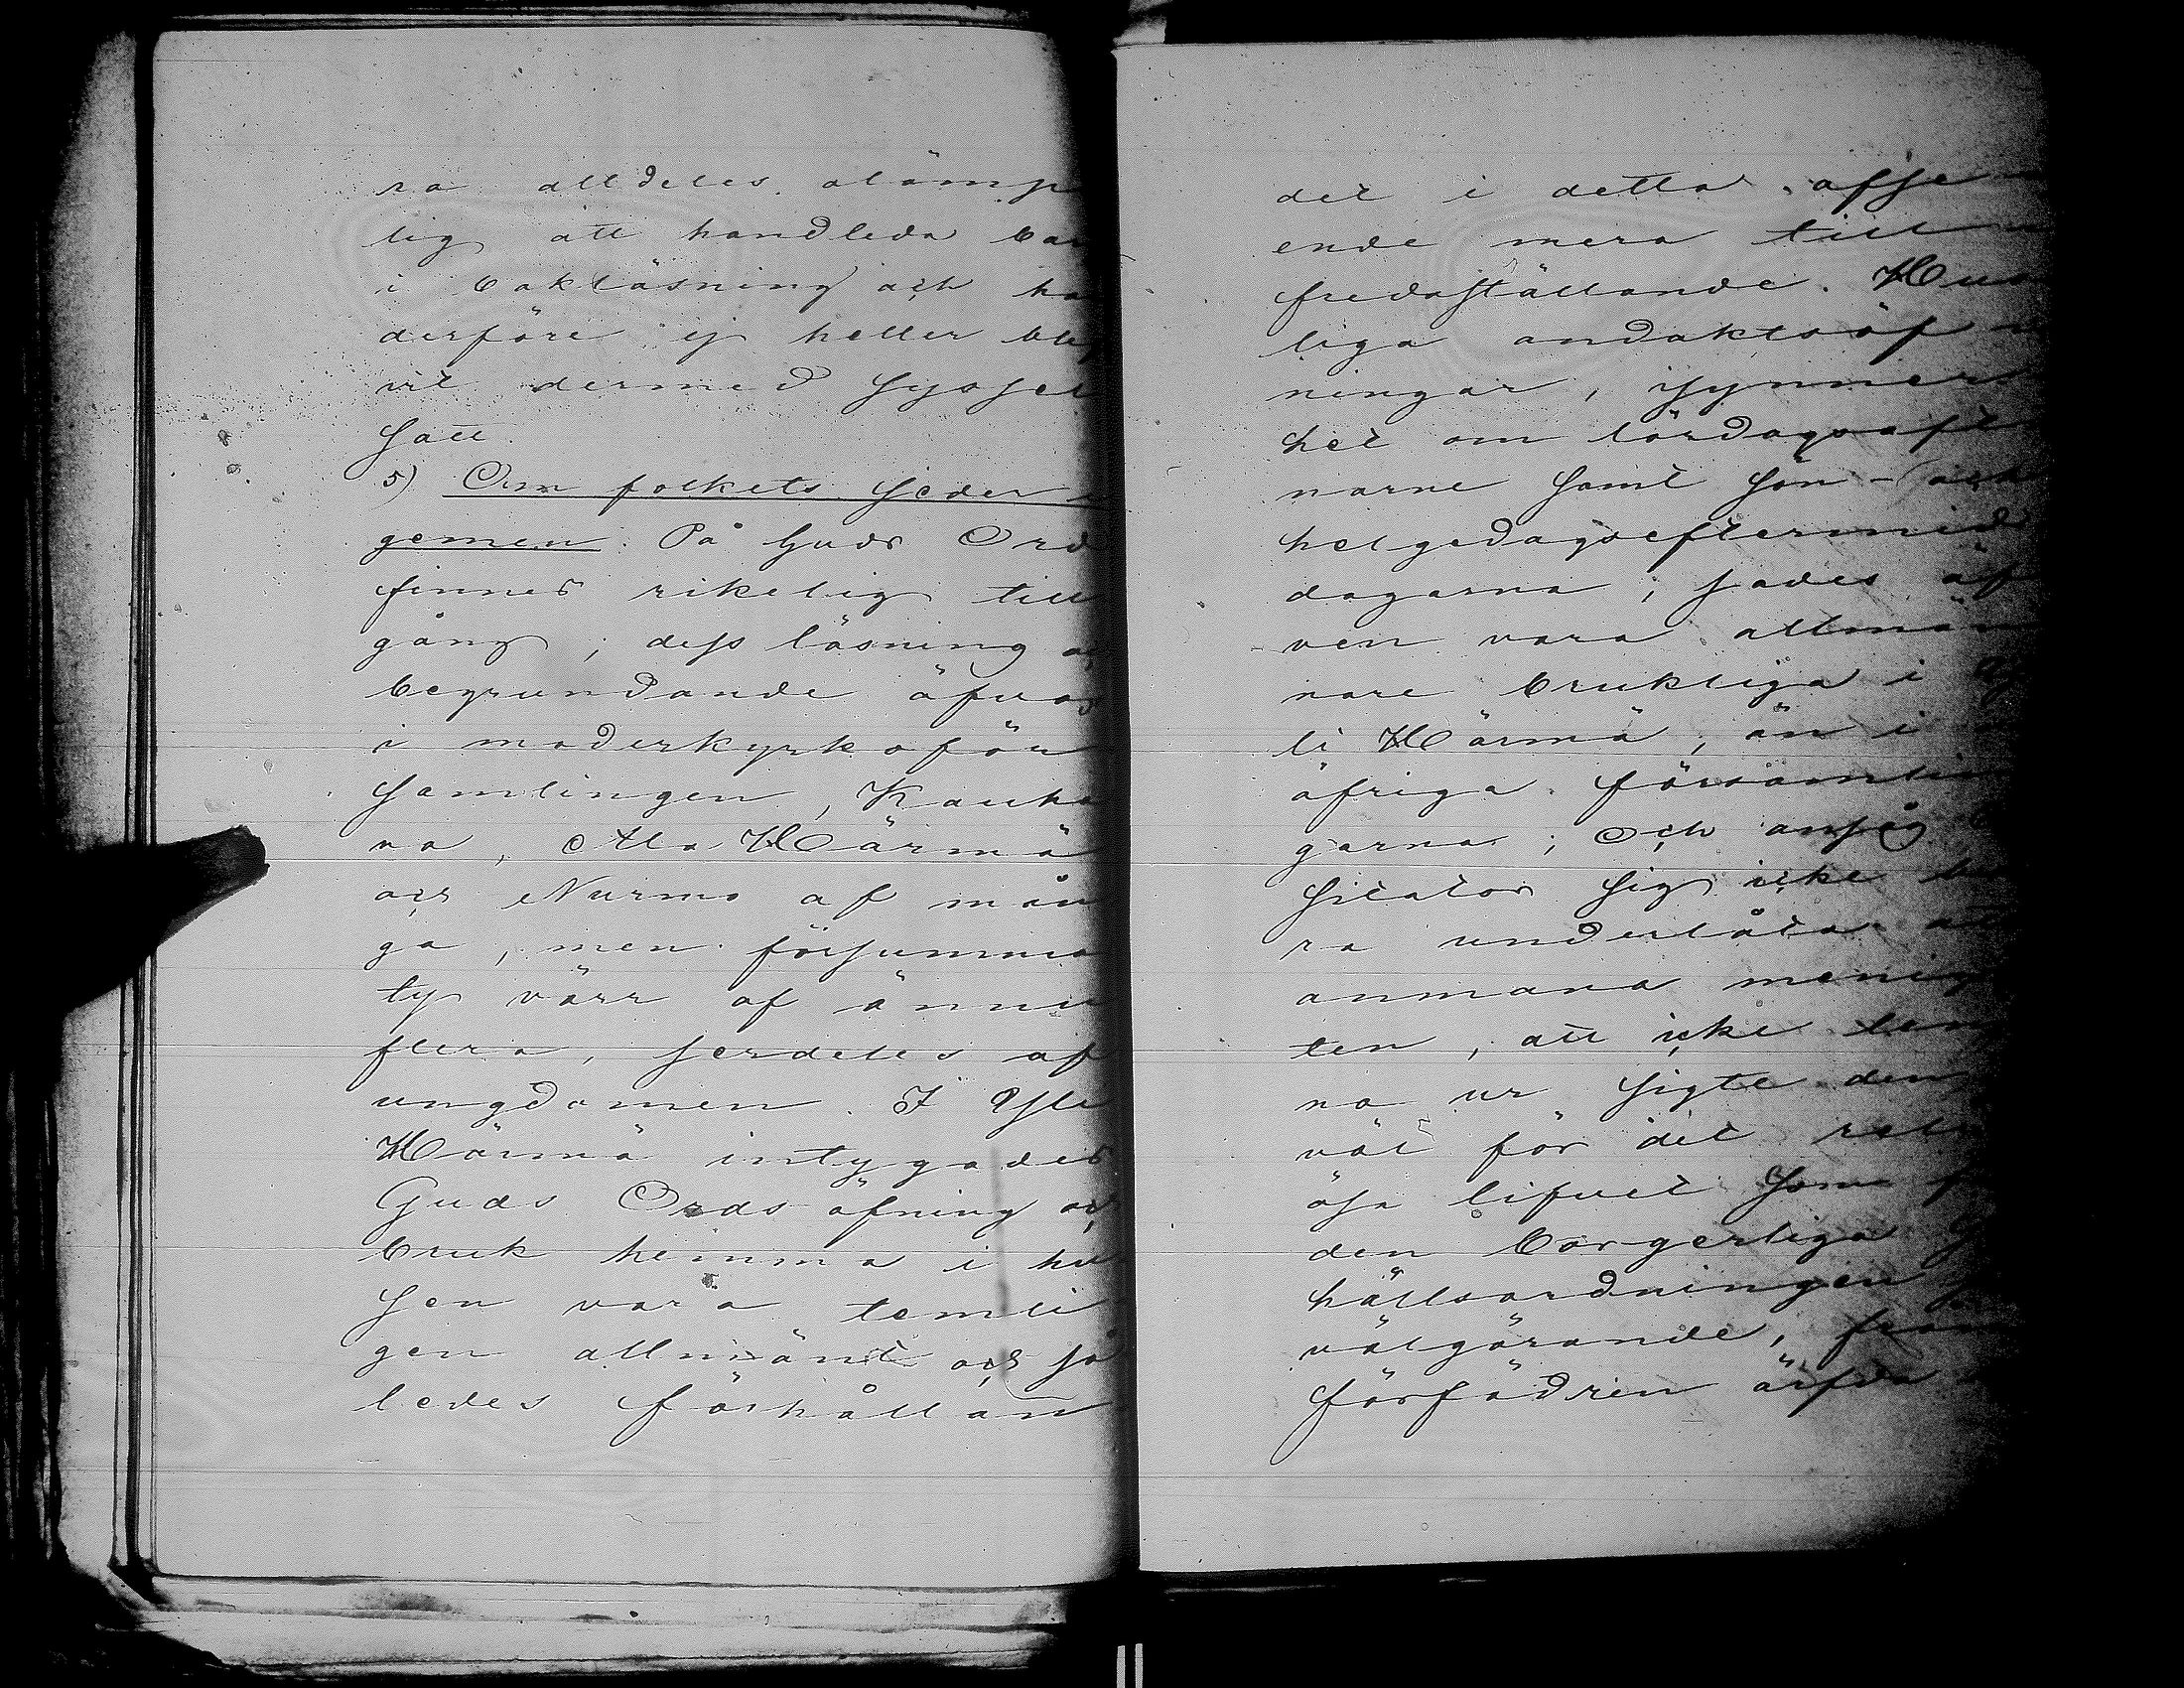 ra alldeles olämp
lig att handleda bar
i bokläsning och ha
derföre ej heller blif
vit dermed syssel
satt.
5) Om folkets seder i
gemen. På Guds Ord
finnes rikelig till
gång; dess läsning oc
begrundande öfvas
i moderkyrkoför
samlingen, Kauha
va, Ala Härmä
och Nurmo af mån
ga, men försummas
ty värr af ännu
flera, serdeles af
ungdomen. I Yli
Härmä intygades
Guds Ords öfning och
bruk hemma i hu
sen vara temli
gen allmänt och så
ledes förhållan
det i detta afse
ende mera till
fredsställande. Hus
liga andaktsöf
ningar, isynner
het om lördagsaft
narne samt sön- och
helgedagseftermid
dagarna, sades äf
ven vara allmän
nare brukliga i Y
li Härmä, än i
öfriga församlin
garna; Och ansåg
sitator sig icke bo
ra underlåta at
anmana menighe
ten, att icke lem
na ur sigte den
väl för det reli
ösa lifvet som f
den borgerliga
hållsordningen
välgörande, från
förfädren ärfda